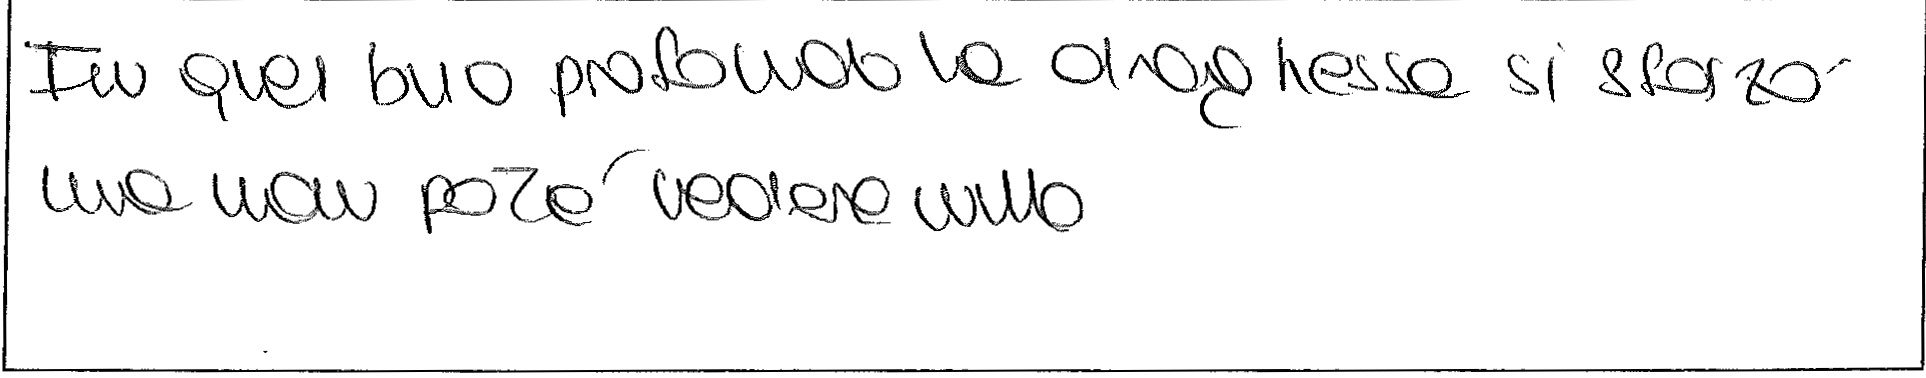 In quel buio profondo la draghessa si sforzò
ma non poté vedere nulla